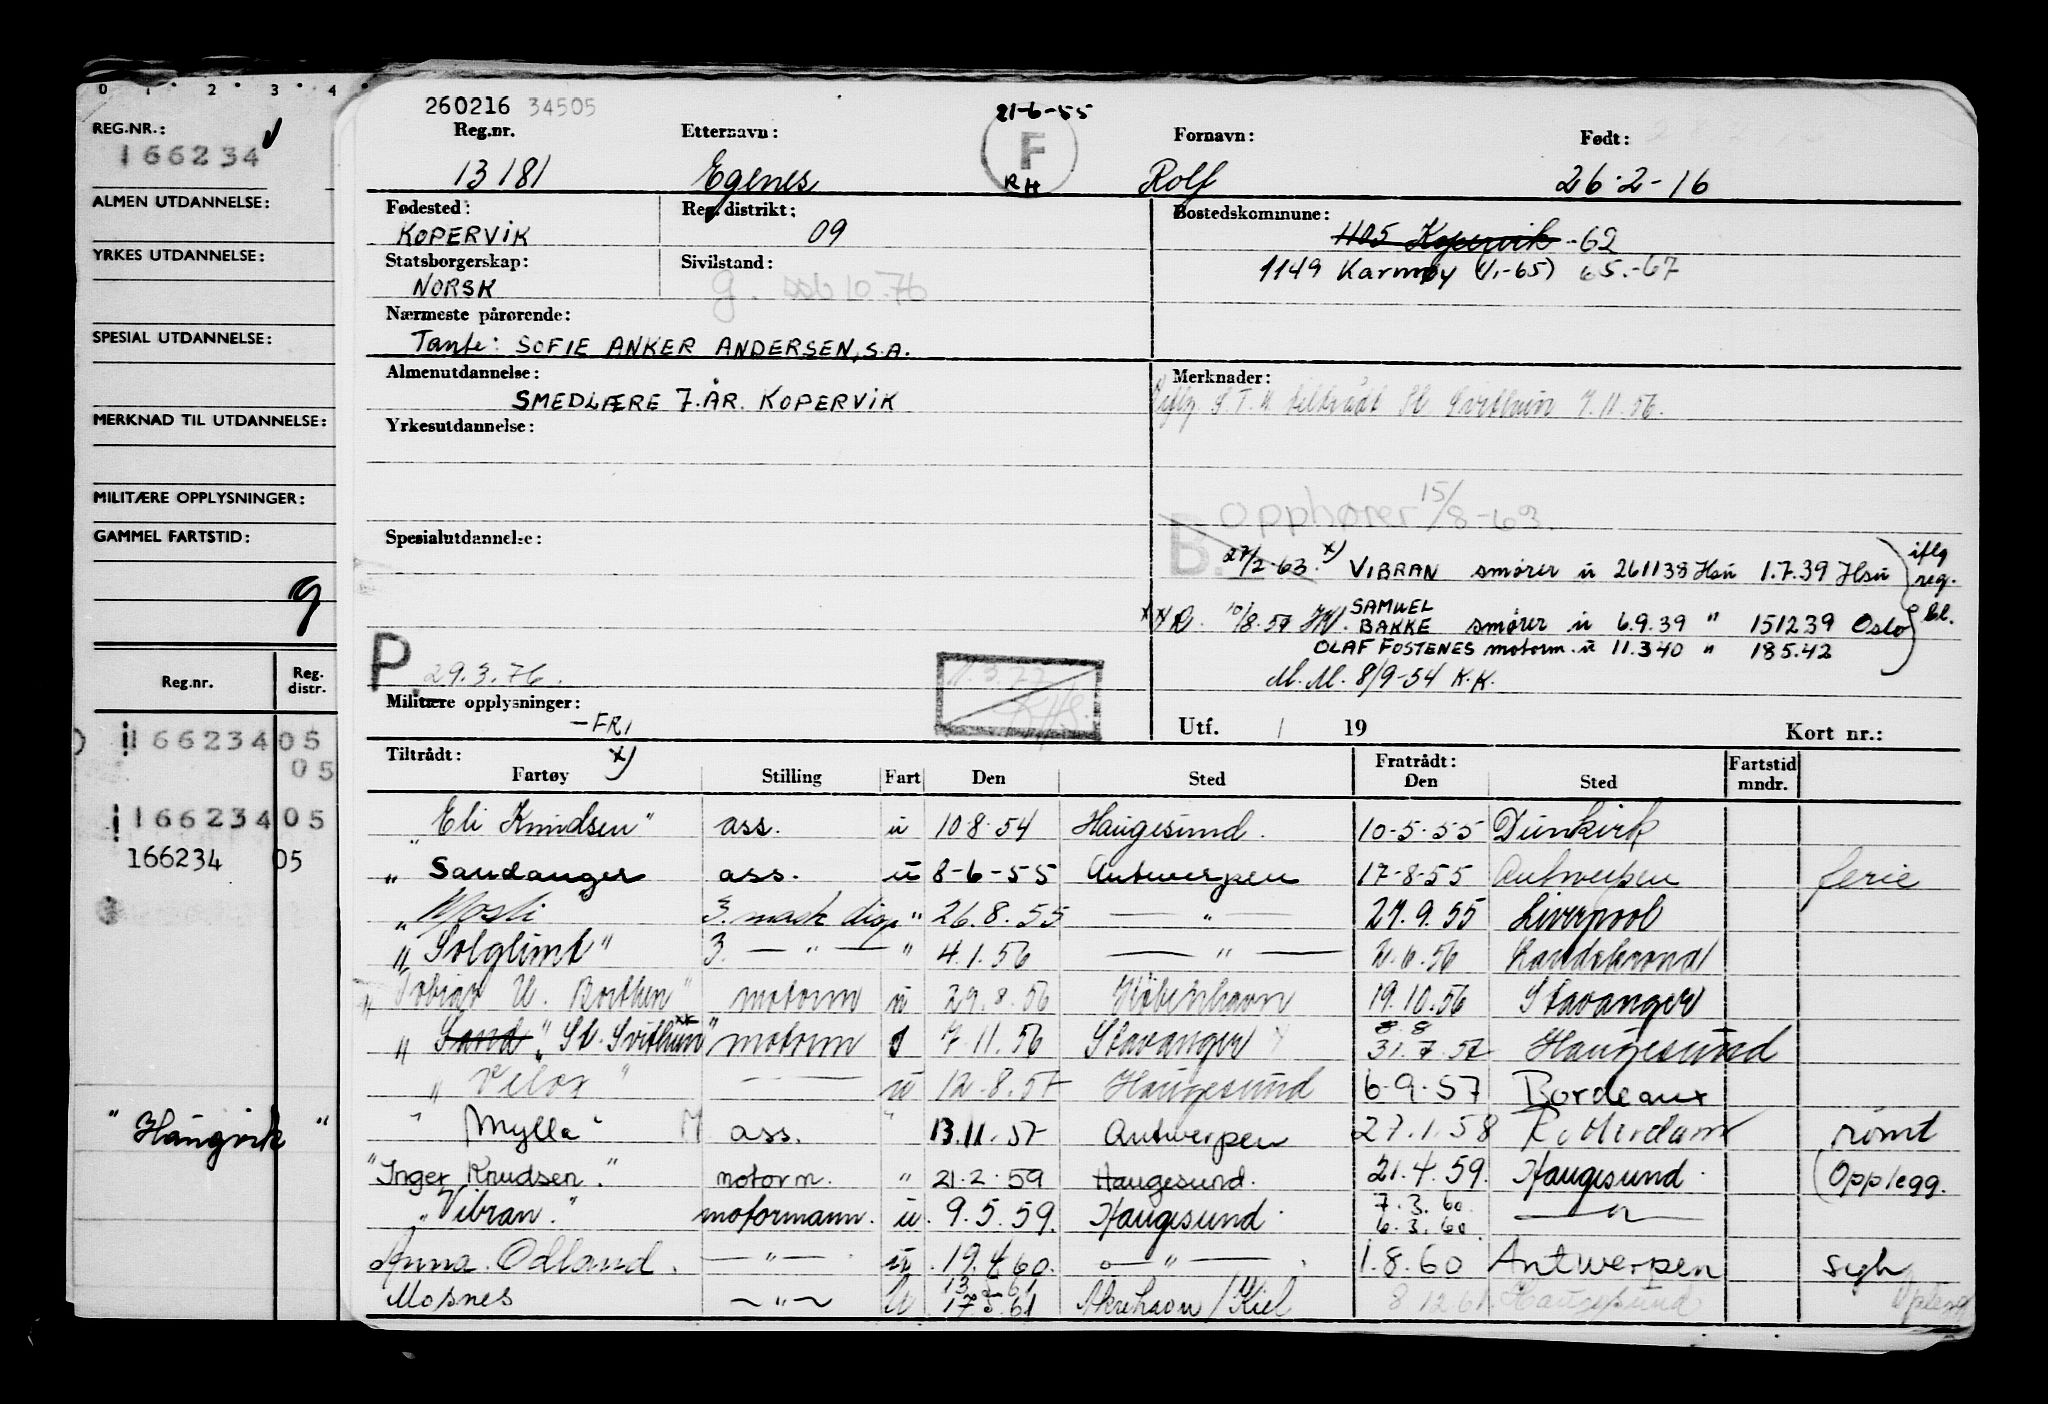 0 1 2 3 4
REG.NR.:
166234
ALMEN UTDANNELSE:
YRKES UTDANNELSE:
SPESIAL UTDANNELSE:
MERKNAD TIL UTDANNELSE:
MILITÆRE OPPLYSNINGER:
GAMMEL FARTSTID:
g
Reg.nr. Reg. distr.
166234 05
05
166234 05
166234 05
"Haugvik"
260216 34505
21-6-55
Reg.nr. Etternavn: F Fornavn: Født:
13181 Egenes RH Rolf 26-2-16
Fødested: Reg. distrikt: Bostedskommune:
KOPERVIK 09 1105 Kopervik -62
Statsborgerskap: Sivilstand: 1149 Karmøy (1/1-65) 65.-67
NORSK g. ssb 10.76
Nærmeste pårørende:
Tante: SOFIE ANKER ANDERSEN, S.A.
Almenutdannelse: Merknader:
SMEDLÆRE 7.ÅR. KOPERVIK
tiltrådt St Svithun 7.11.56.
Yrkesutdannelse:
opphører 15/8-63.
Spesialutdannelse:
B. 27/2-63. x) VIBRAN smører u 261138 Hsu 1.7.39 Hsu iflg reg. bl.
xx R. 10/8.59 SAMUEL BAKKE smører u 6.9.39 " 151239 Oslo
OLAF FOSTENES motorm. u 11.340 " 185.42
P. 29.3.76. M.M. 8/9-54 K.K.
Militære opplysninger:
-FRI
Utf. / 19 Kort nr.:
Tiltrådt: x) Fratrådt:
Fartøy Stilling Fart Den Sted Den Sted Fartstid mndr.
"Eli Knudsen" ass. u 10-8-54 Haugesund. 10-5-55 Dunkirk
" Sandanger ass. u 8-6-55 Antwerpen 17-8-55 Antwerpen ferie
" Mosli 3. mask disp " 26.8.55 — " — 27.9.55 Liverpool
" Solglimt" 3. — " — " 4.1.56 — " — 2.6.56 Landskrona
" Tobias U. Borthen" motorm u 29.8.56 København 19.10.56 Stavanger
" Sand "St. Svithun" xx motorm 7.11.56 Stavanger 8.8 31.7.57 Haugesund
" Velox " — u 12-8-57 Haugesund 6-9-57 Bordeaux
" Mylla" ass. " 13.11.57 Antwerpen 27.1.58 Rotterdam rømt
"Inger Knudsen." motorm. " 21.2.59 Haugesund. 21.4.59. Haugesund. (Opplegg.
"Vibran." motormann. u. 9.5.59. Haugesund. 7.3.60. 6.3.60. — " —
Anna Odland. — " — u. 19.4.60. — " — 1.8.60 Antwerpen sygh
Mosnes — " — 13.5.61 17.5.61 Åkrehavn / Kiel 8.12.61. Haugesund Oplegg